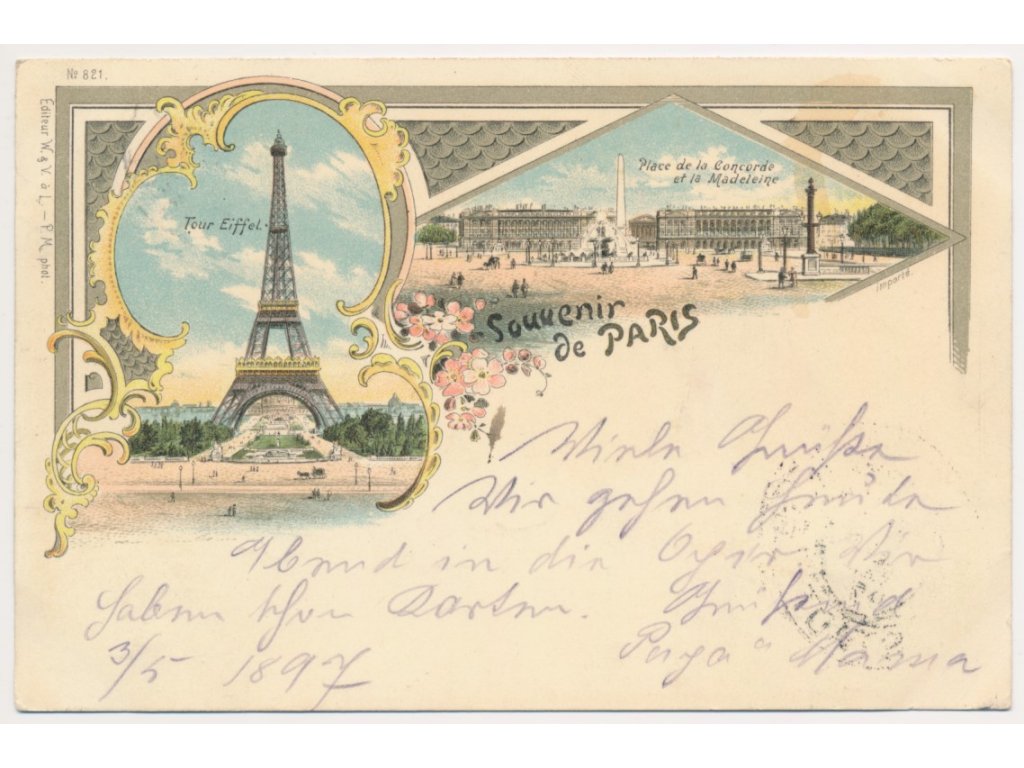 No 821.
Editeur W. & V. à L. – P. M. phot.
Tour Eiffel.
Place de la Concorde
et la Madeleine
Importé.
Souvenir
de PARIS
Viele Grüße
Wir gehen heute
Abend in die Oper Wir
haben schon Karten. Grüßend
Papa u Mama
3/5 1897